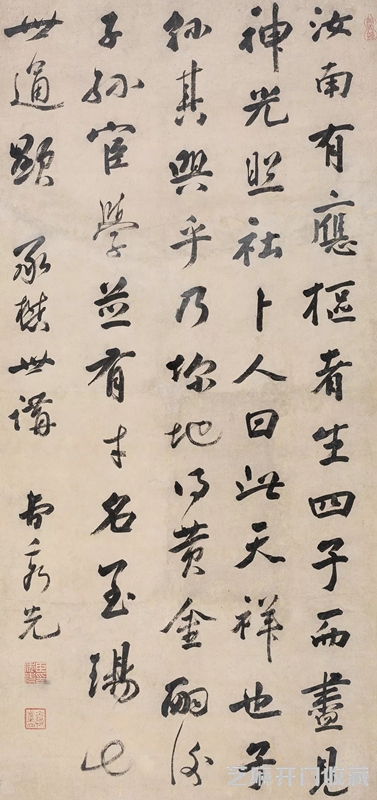 汝南有應樞者生四子而盡見
神光照社卜人曰此天祥也子
孫其興乎乃地得黃金嗣後
子孫宦學並有才名至瑒七
世通顯 承世講 曹秀先
开门收藏